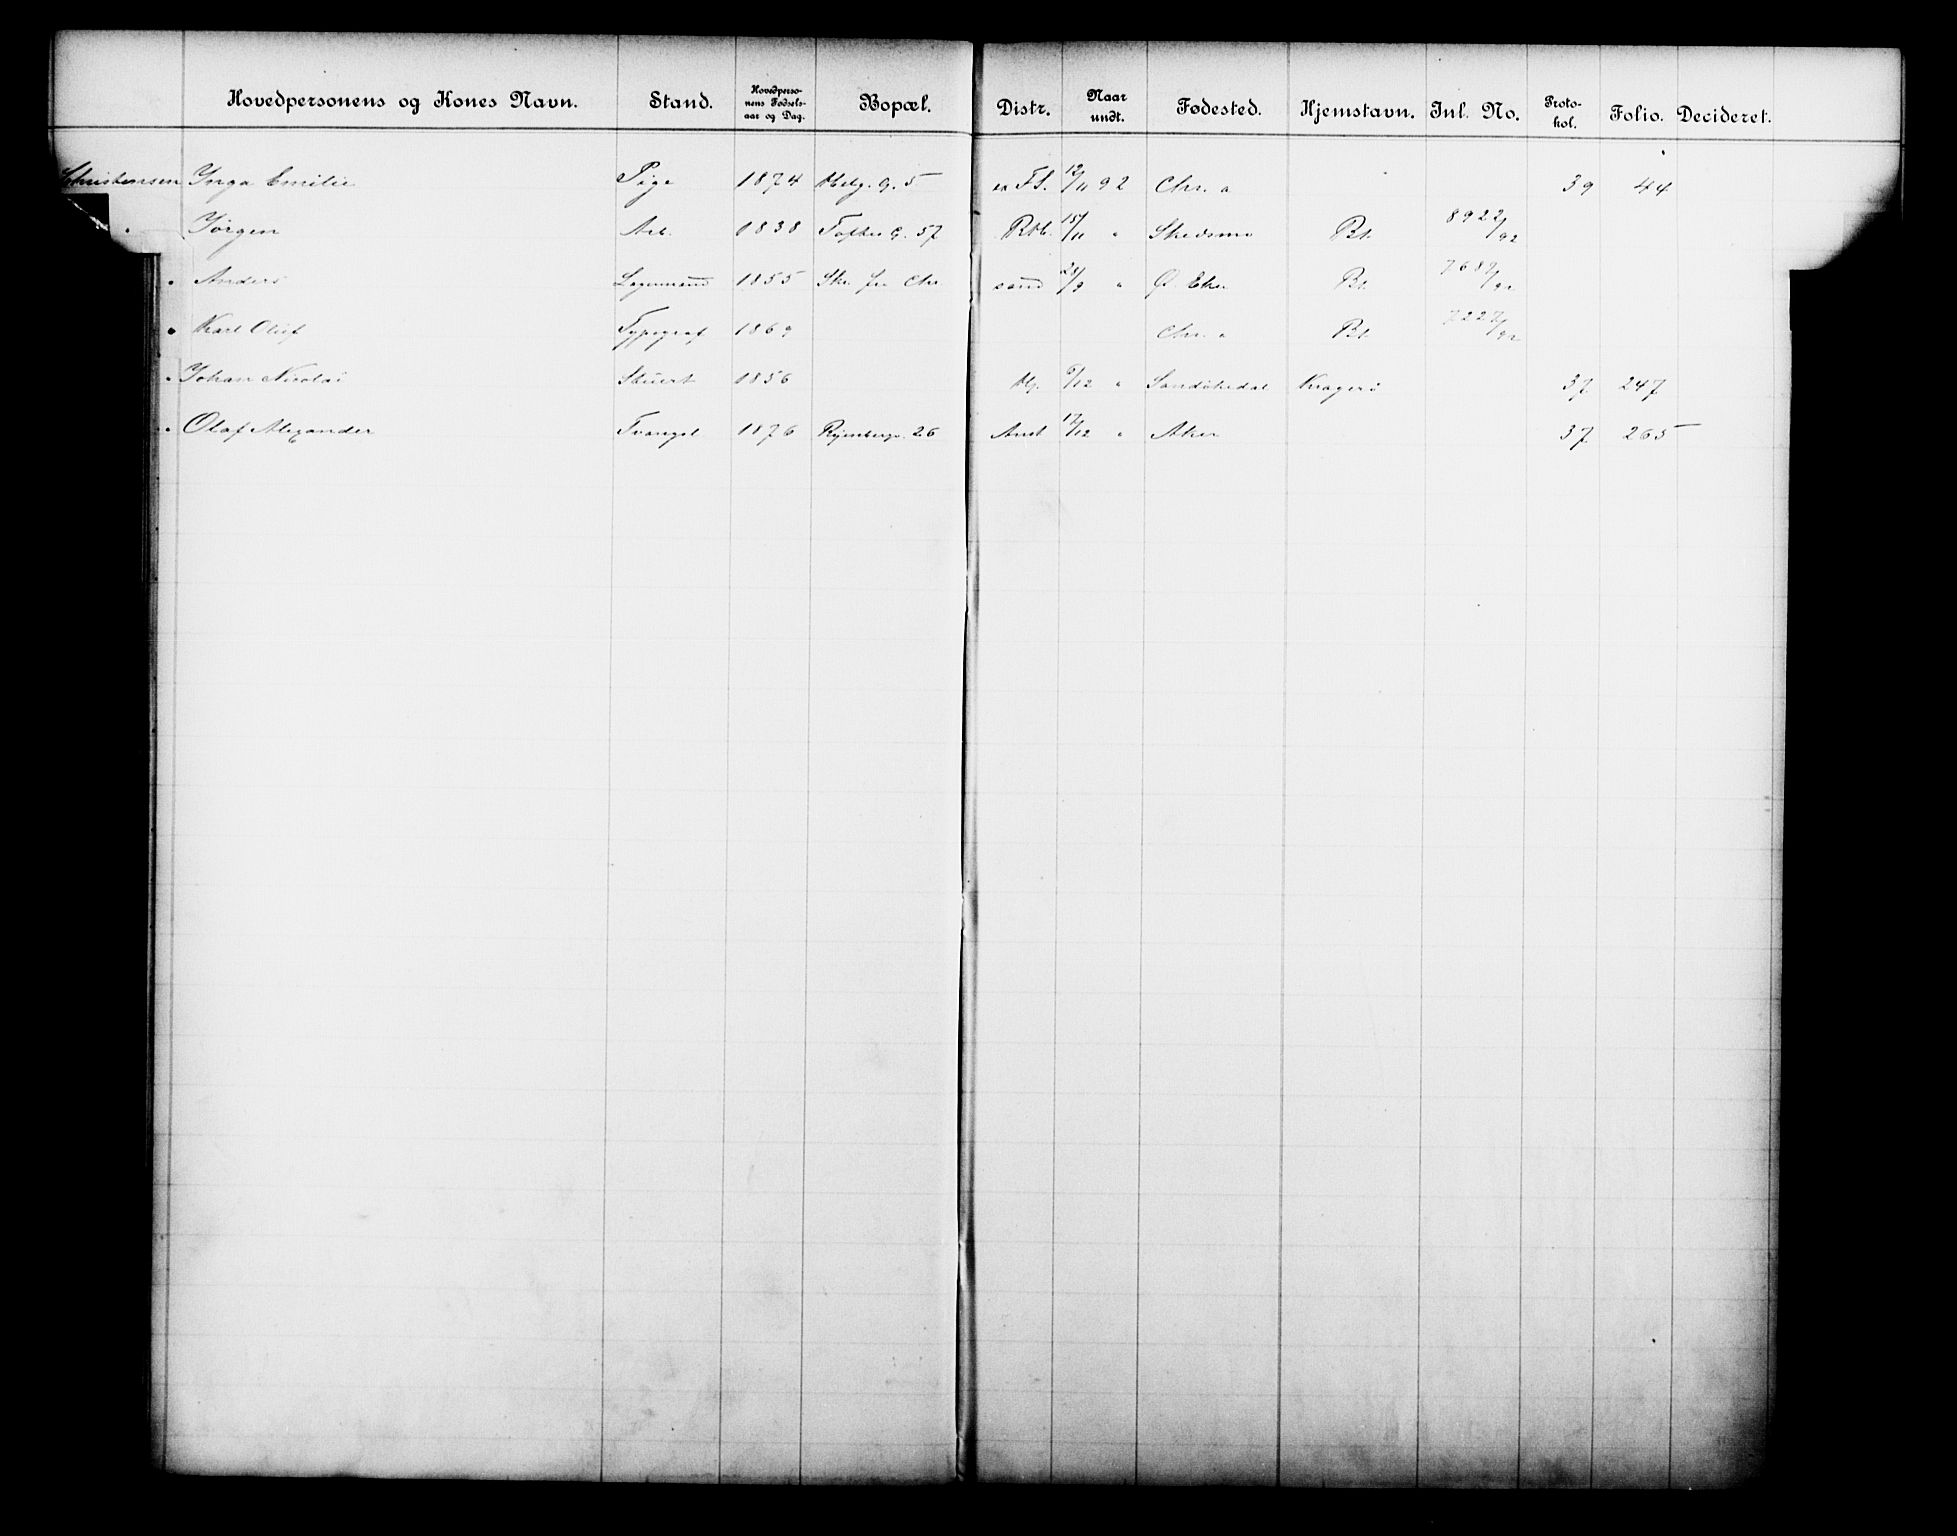 Hovedpersonens og Kones Navn. Stand. Hovedpersonens Fødselsaar og Dag. Bopæl. Distr. Naar undt. Fødested. Hjemstavn. Inl. No. Protokol. Folio. Decideret.
Christensen Inga Emilie Pige 1874 Helg. G. 5 12/11 92 Chr. a 39 44
" Jörgen Arb. 1838 Tofte G. 57 15/11 " Skedsmo Bt. 8922/92
" Anders Lagermand 1855 28/9 " Ø. Eker Bt. 7682/92
" Karl Oluf Typograf 1869 Chr. a Bt. 7227/92
" Johan Nicolai Stuert 1856 6/12 " Sandökedal Kragerö 37 247
" Olaf Alexander Tvangsl. 1876 26 Anst 17/12 " Aker 37 265